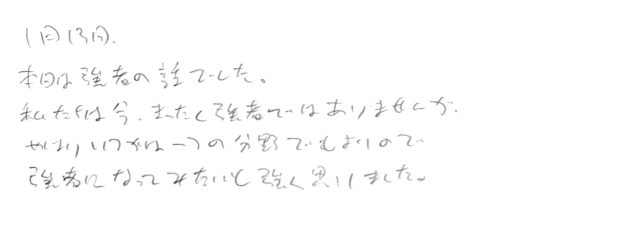 1月13日、
本日は強者の話でした。
私たちは今、まったく強者ではありませんが、
やはり、いつかは一つの分野でもよいので
強者になってみたいと強く思いました。